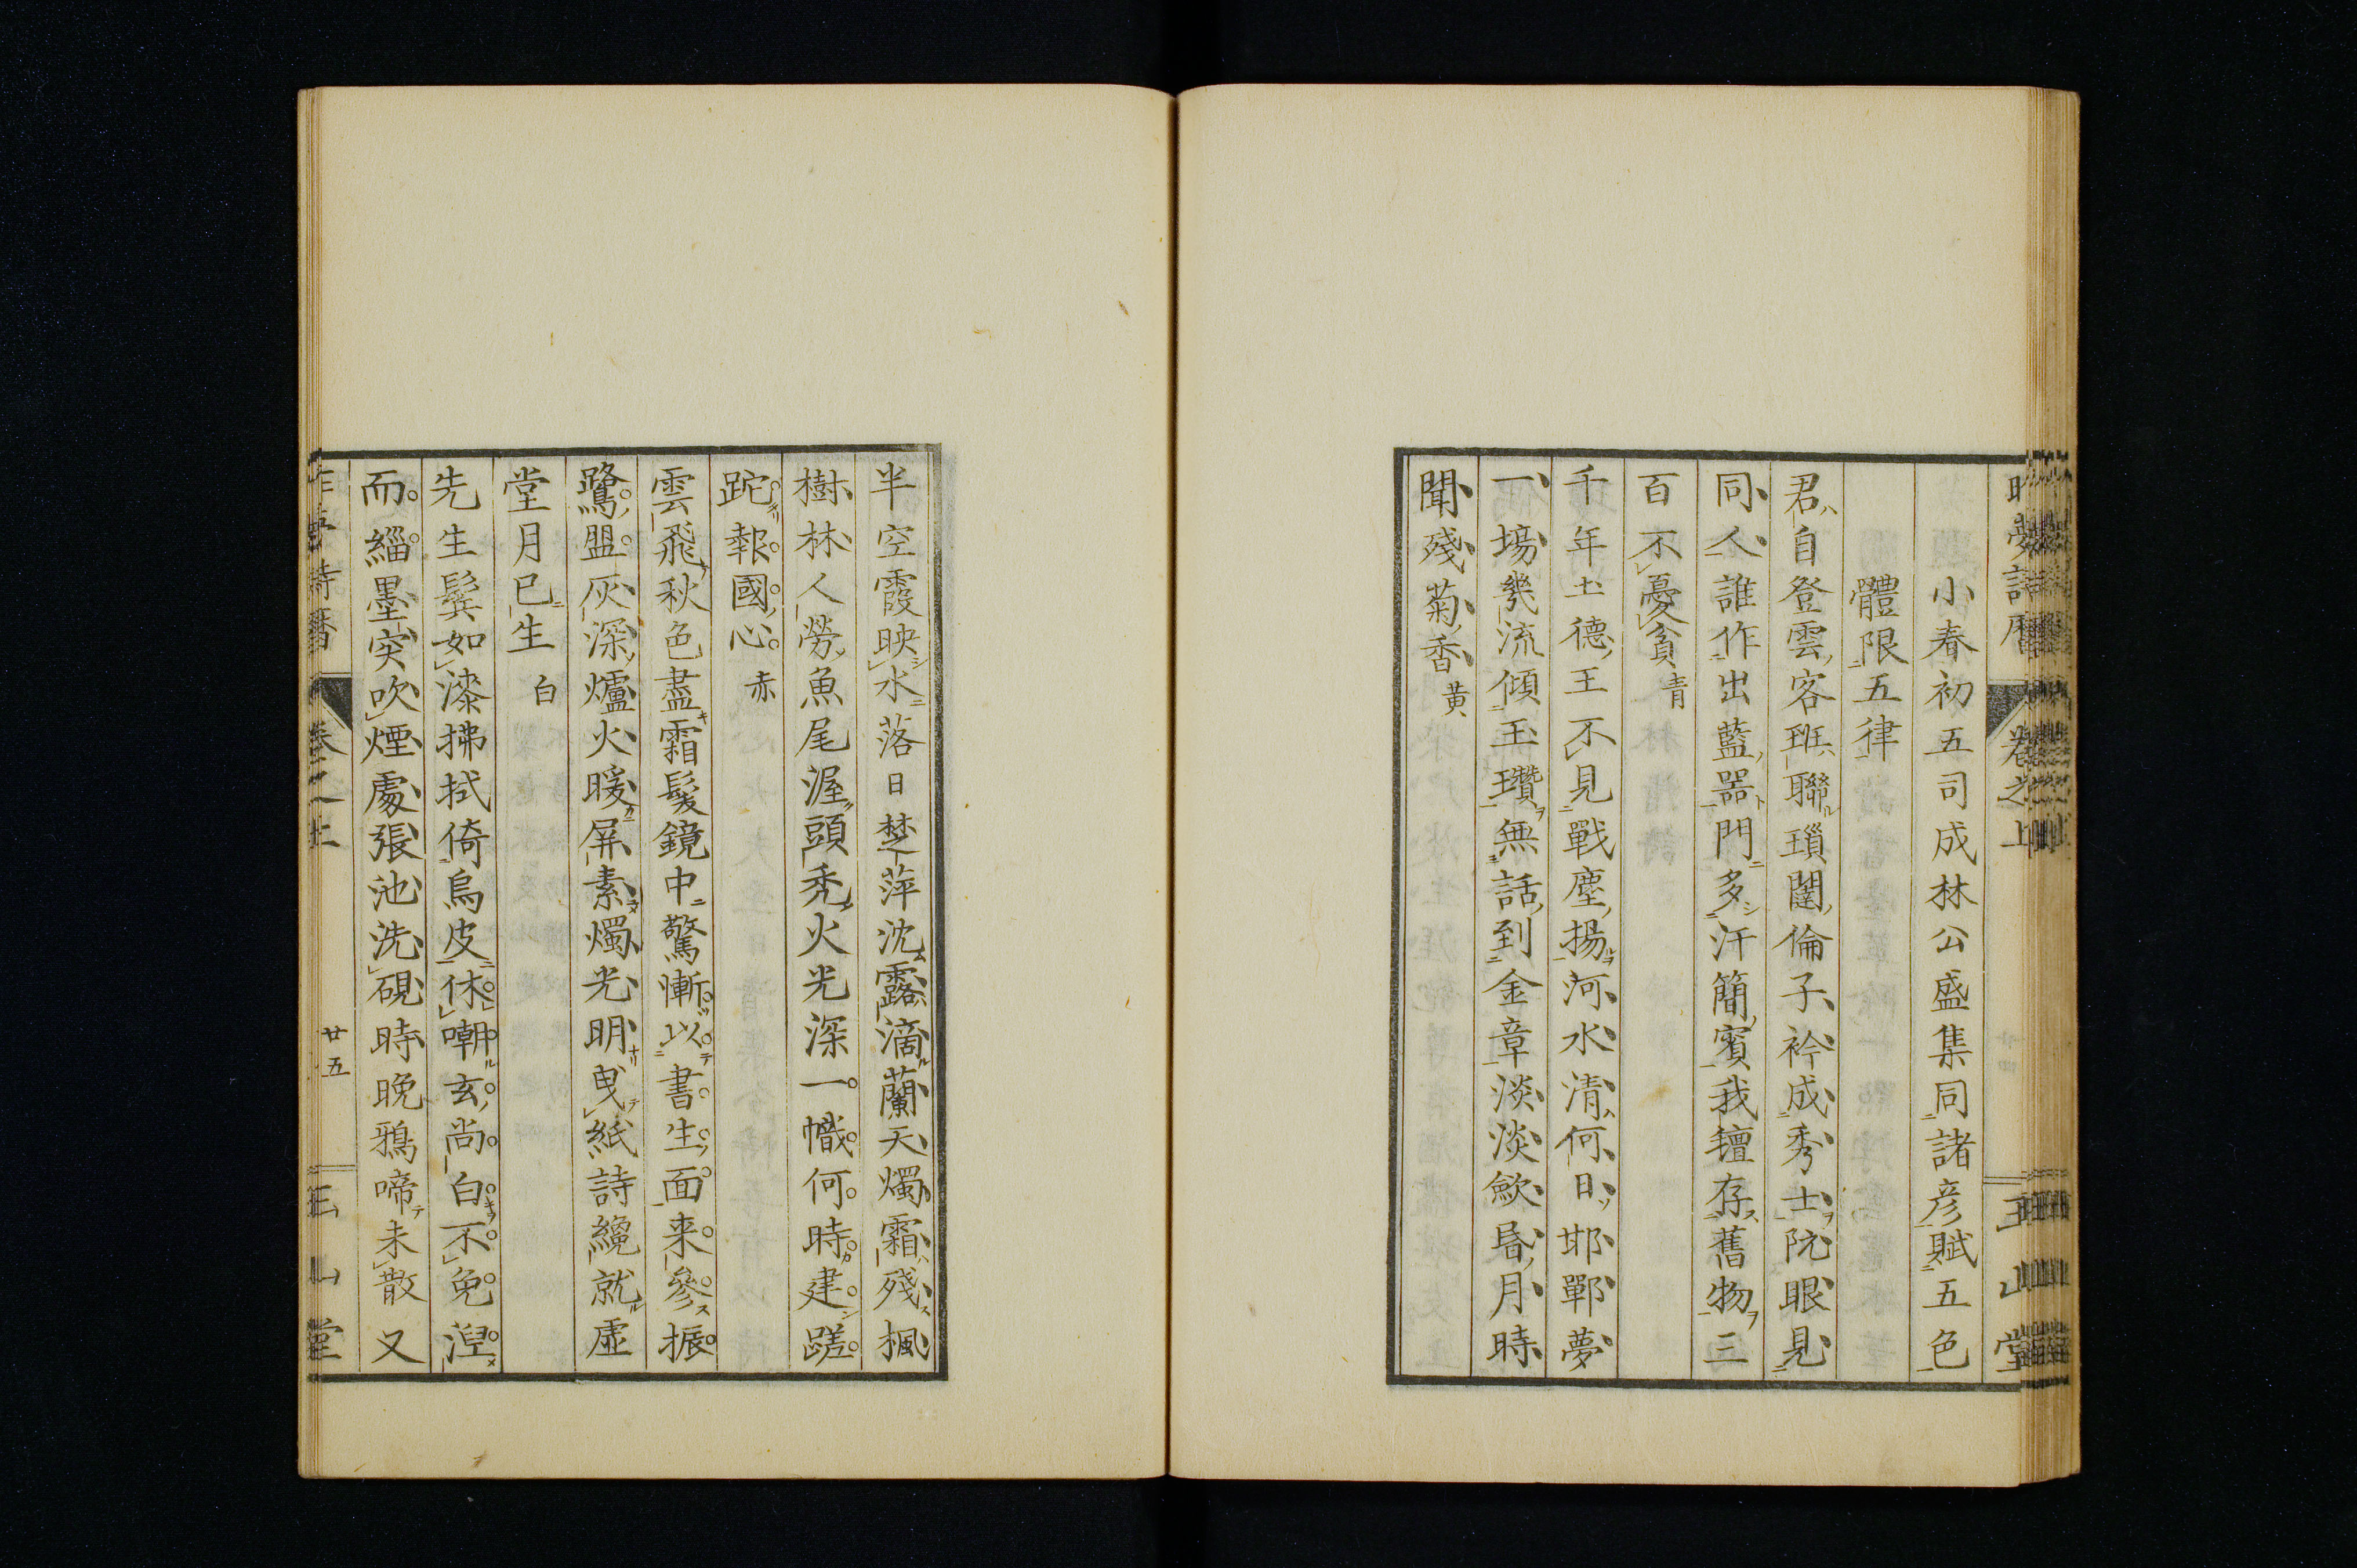 昨夢詩曆 卷之上 玉山堂
小春初五司成林公盛集同諸彦賦五色
體限五律
君自登雲客班聯瑣闥倫子衿成秀士阮眼見
同人誰作出藍器門多汗簡賓我氊存舊物三
百不憂貧 青
千年土德王不見戰塵揚河水清何日邯鄲夢
一場幾流傾玉瓚無話到金章淡淡歛昏月時
聞殘菊香 黃
半空霞映水落日楚萍沈露滴蘭天燭霜殘楓
樹林人勞魚尾渥頭禿火光深一幟何時建蹉
跎報國心 赤
雲飛秋色盡霜髮鏡中驚慚以書生面来參振
鷺盟灰深爐火暖屏素燭光明曳紙詩纔就虛
堂月已生 白
先生鬂如漆拂拭倚烏皮休嘲玄尚白不免涅
而緇墨突吹煙處張池洗硯時晚鴉啼未散又
昨夢詩曆 卷之上 廿五 玉山堂